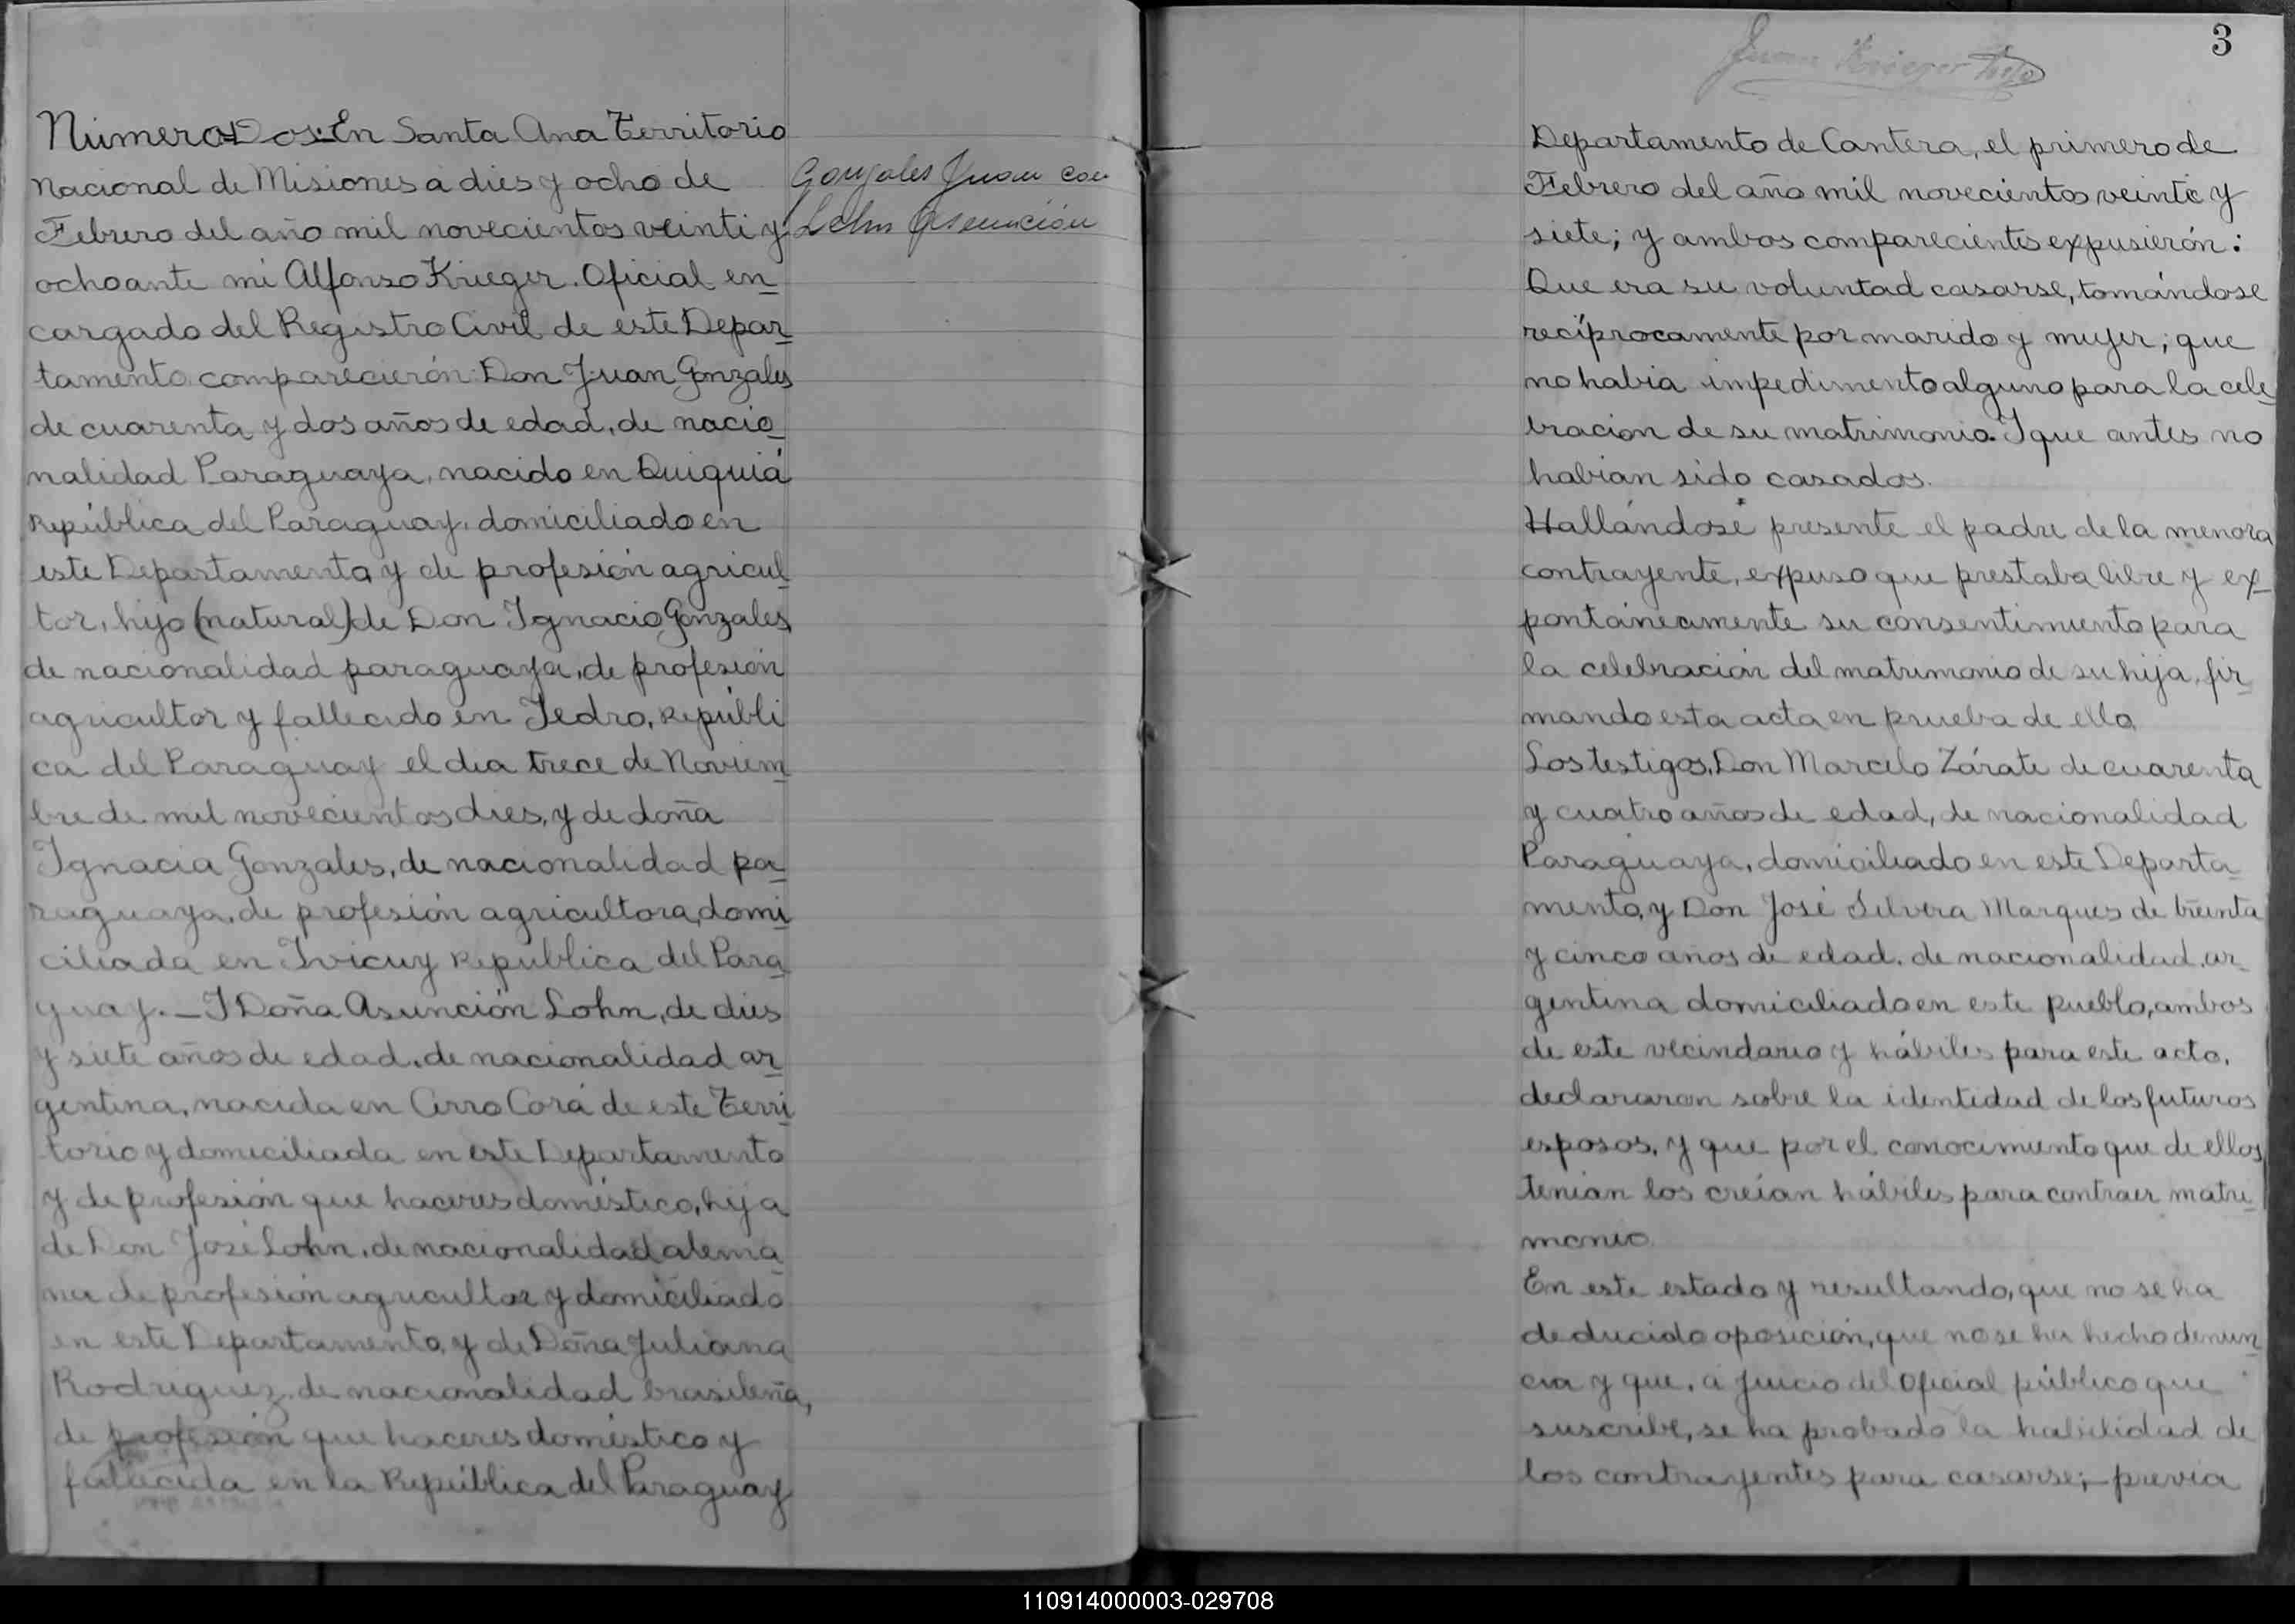 Número Dos: En Santa Ana Territorio
Nacional de Misiones a dies y ocho de
Febrero del año mil novecientos veinti y
ocho ante mi Alfonso Krieger. Oficial en
cargado del Registro Civil de este Depar
tamento comparecierón: Don Juan Gonzales
de cuarenta y dos años de edad, de nacio
nalidad Paraguaya, nacido en Quiquiá
República del Paraguay, domiciliado en
este Departamento y de profesión agricul
tor, hijo (natural) de Don Ignacio Gonzales,
de nacionalidad paraguaya, de profesión
agricultor y fallecido en Pedro, Repúbli
ca del Paraguay el dia trece de Noviem
bre de mil novecientos dies, y de doña
Ignacia Gonzales, de nacionalidad pa
raguaya, de profesión agricultora, domi
ciliada en Ivicuy República del Para
guay. — I Doña Asunción Lohn, de dies
y siete años de edad, de nacionalidad ar
gentina, nacida en Cerro Corá de este Terri
torio y domiciliada en este Departamento
y de profesión que haceres doméstico, hija
de Don José Lohn, de nacionalidad alema
na de profesión agricultor y domiciliado
en este Departamento, y de Doña Juliana
Rodriguez, de nacionalidad brasileña,
de profesión que haceres doméstico y
fallecida en la República del Paraguay
Gonzales Juan con
Lohn Asunción
3
Juan Krieger
Departamento de Cantera, el primero de
Febrero del año mil novecientos veinte y
siete; y ambos comparecientes expusierón:
Que era su voluntad casarse, tomándose
recíprocamente por marido y mujer; que
no habia impedimento alguno para la cele
bracion de su matrimonio. I que antes no
habian sido casados.
Hallándose presente el padre de la menora
contrayente, expuso que prestaba libre y ex
pontáneamente su consentimiento para
la celebración del matrimonio de su hija, fir
mando esta acta en prueba de ello.
Los testigos, Don Marcelo Zárate de cuarenta
y cuatro años de edad, de nacionalidad
Paraguaya, domiciliado en este Departa
mento, y Don José Silvera Marques de treinta
y cinco años de edad, de nacionalidad ar
gentina domiciliado en este pueblo, ambos
de este vecindario y hábiles para este acto,
declararon sobre la identidad de los futuros
esposos, y que por el conocimiento que de ellos
tenían los creían hábiles para contraer matri
monio.
En este estado y resultando, que no se ha
deducido oposición, que no se ha hecho denun
cia y que, a juicio del Oficial público que
suscribe, se ha probado la habilidad de
los contrayentes para casarse; previa
110914000003-029708